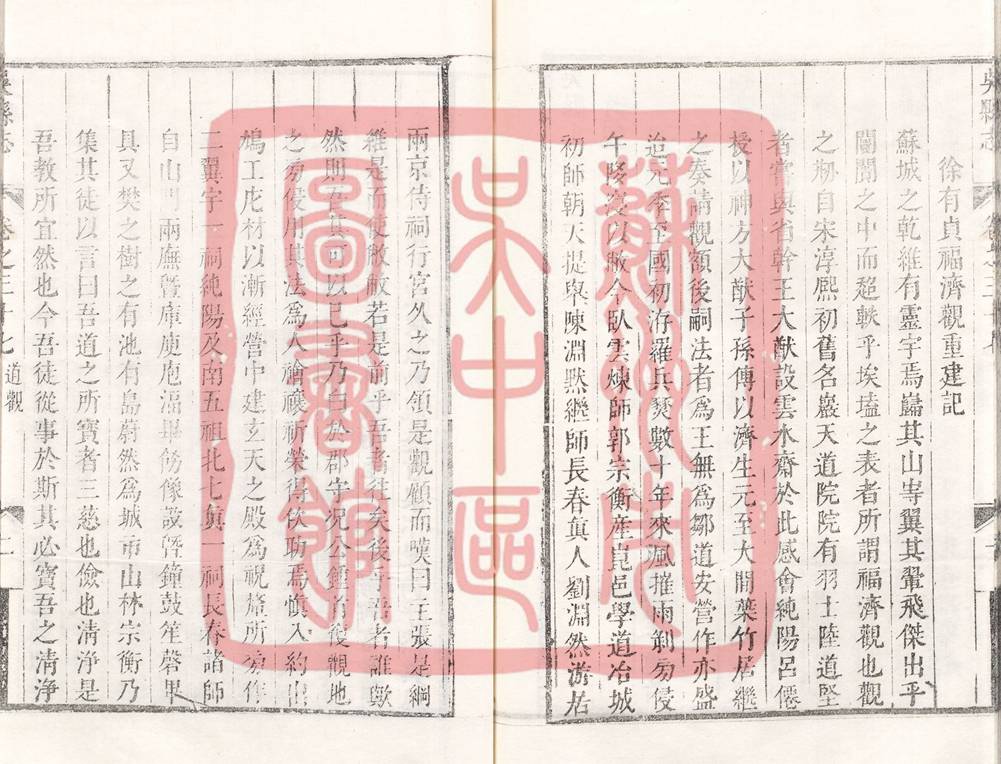 吳縣志
徐有貞福濟觀重建記
蘇城之乾維有靈宇焉巋其山峙翼其翬飛傑出乎
闤闠之中而超軼乎埃壒之表者所謂福濟觀也觀
之剏自宋淳熙初舊名巖天道院院有羽士陸道堅
者嘗與省幹王大猷設雲水齋於此感會純陽呂僊
授以神方大猷子孫傳以濟生元至大間葉竹居繼
之奏請觀額後嗣法者為王無為鄒道安營作亦盛
迨元季至國初洊罹兵燹數十年來風摧雨剝旁侵
午隳寖以敝今臥雲煉師郭宗衡產崑邑學道冶城
初師朝天提舉陳淵默繼師長春真人劉淵然游居
兩京侍祠行宮久之乃領是觀顧而嘆曰主張是綱
維是而使敝敝若是前乎吾者往矣後乎吾者誰歟
然則吾其可以已乎乃白於郡守況公鍾首復觀地
之旁侵用其法為人禬禳祈禜得佽助焉慎入約出
鳩工庀材以漸經營中建玄天之殿為祝釐所旁作
二翼宇一祠純陽及南五祖北七真一祠長春諸師
自山門兩廡暨庫庾庖湢畢飭像設暨鐘鼓笙磬畢
具又樊之樹之有池有島蔚然為城市山林宗衡乃
集其徒以言曰吾道之所寶者三慈也儉也清淨是
吾教所宜然也今吾徒從事於斯其必寶吾之清淨
吳縣志
卷之三十七
道觀
二
蘇州市
吳中區
圖書館